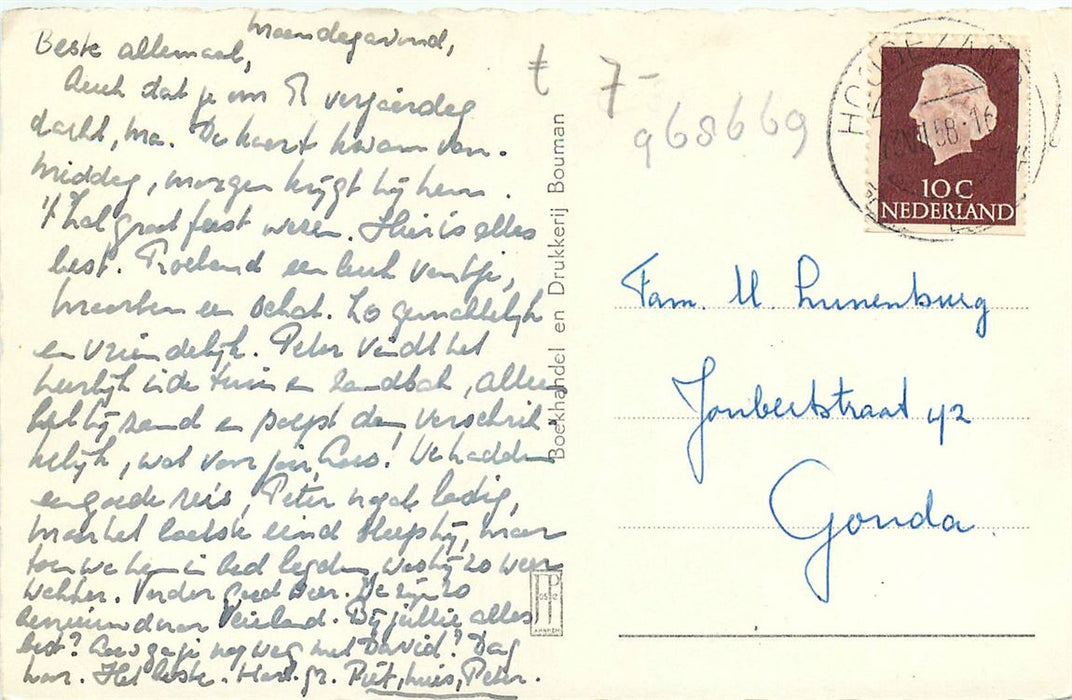 Maandagavond,
Beste allemaal,
Leuk dat je om verjaardag
dacht, ma. De kaart kwam van-
middag, morgen krijgt hij hem.
't Zal groot feest wezen. Hier is alles
best. Roeland een leuk ventje,
Maarten een schat. Zo gemakkelijk
en vriendelijk. Peter vindt het
heerlijk in de tuin en zandbak, alleen
hij zand en poept dan verschrik-
kelijk, wat voor jou, Coos! We hadden
een goede reis, Peter nogal lastig,
maar het laatste eind sliep hij, maar
toen we hem in bed legden was hij zo weer
wakker. Verder goed weer. We zijn zo
benieuwd naar Vlieland. Bij jullie alles
best? Coos ga je nog weg met David? Dag
hoor. Het beste. Hart. gr. Piet, Truus, Peter.
t 7-
968669
Boekhandel en Drukkerij Bouman
10 C
NEDERLAND
58
Fam. M. Lunenburg
Joubertstraat 42
Gouda